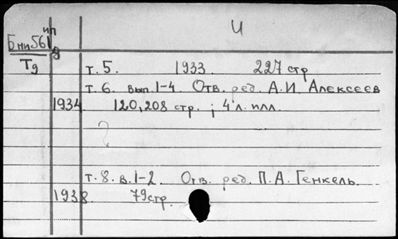 И
Бни561
Тд
т. 5. 1933. 227 стр
т. 6. вып. 1-4. Отв. ред. А.И. Алексеев
1934 120, 208 стр. ; 4 л. илл.
?
т. 8. в. 1-2. Отв. ред. П.А. Генкель.
1938. 79 стр.